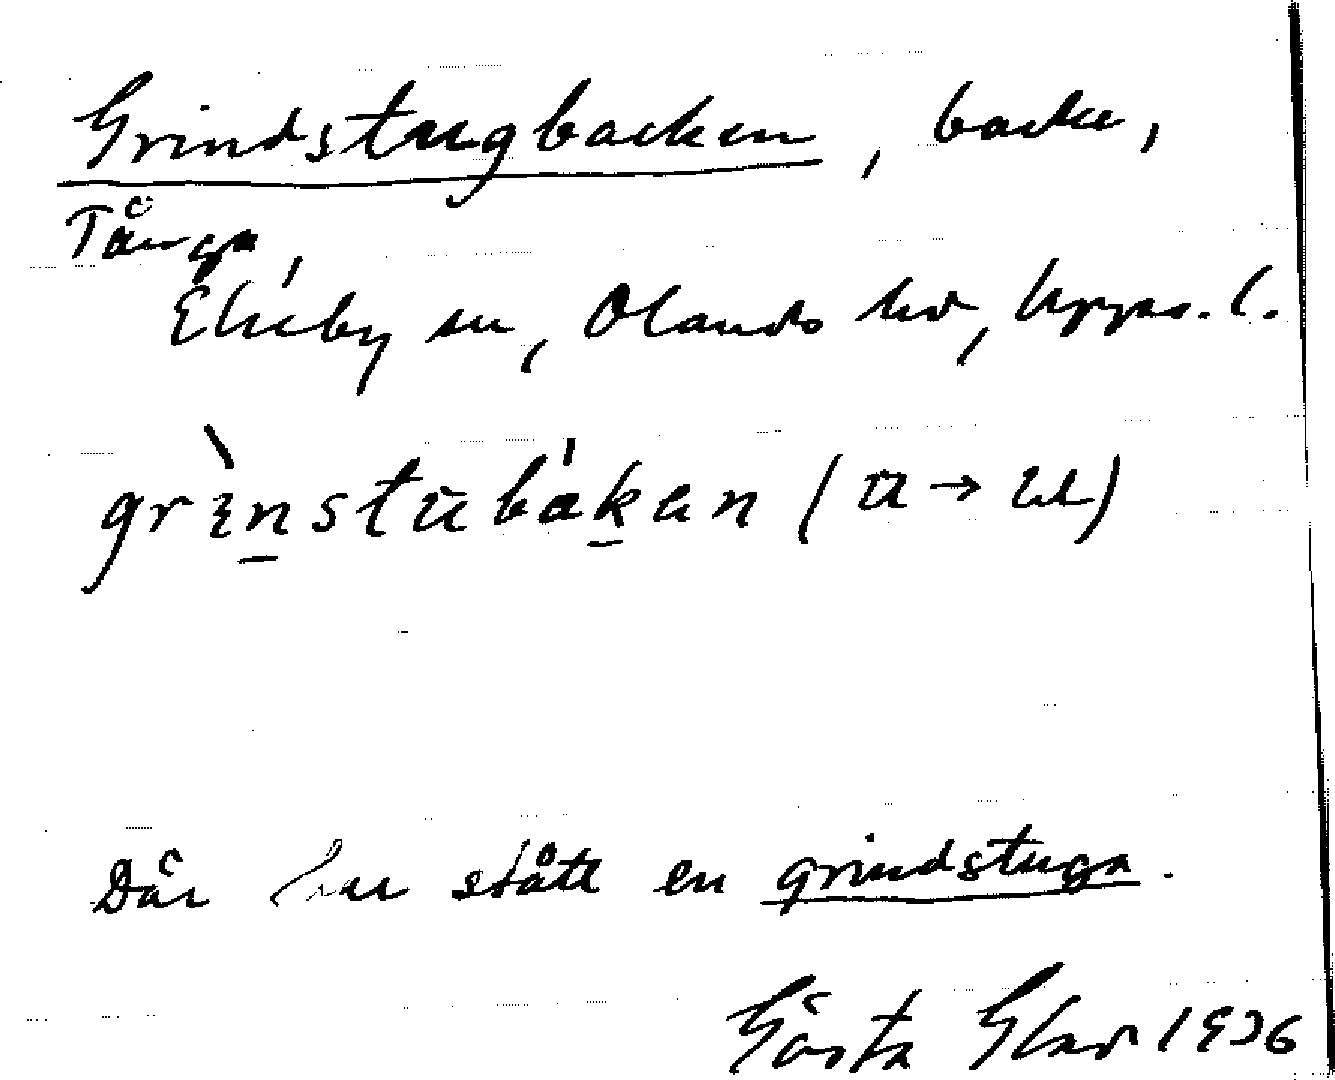 Grindstugbacken, backe,
Tånga,
Ekeby sn, Olands hd, Upps. l.
grìnstūbákan (ū → ɯ)
Där har stått en grindstuga.
Gösta Glad 1936